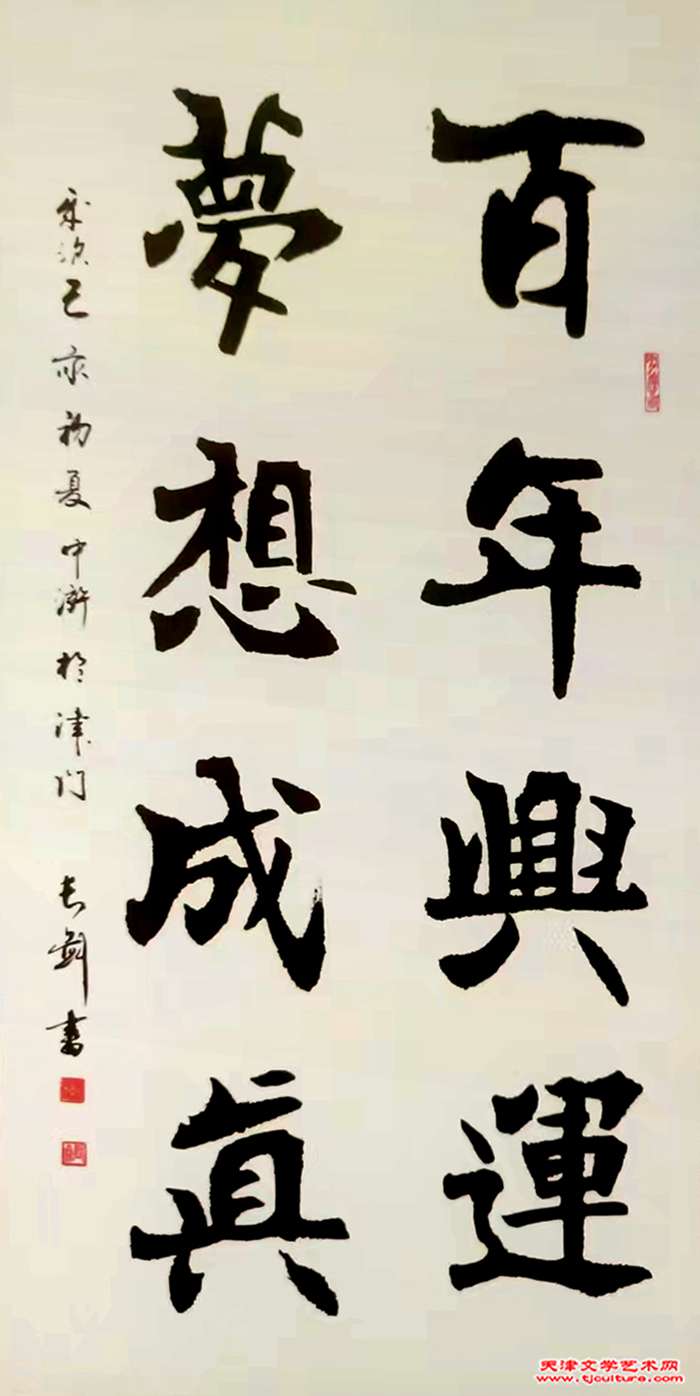 百年興運
夢想成真
歲次己亥初夏中澣於津门
長 書
天津文学艺术网
www.tjculture.com